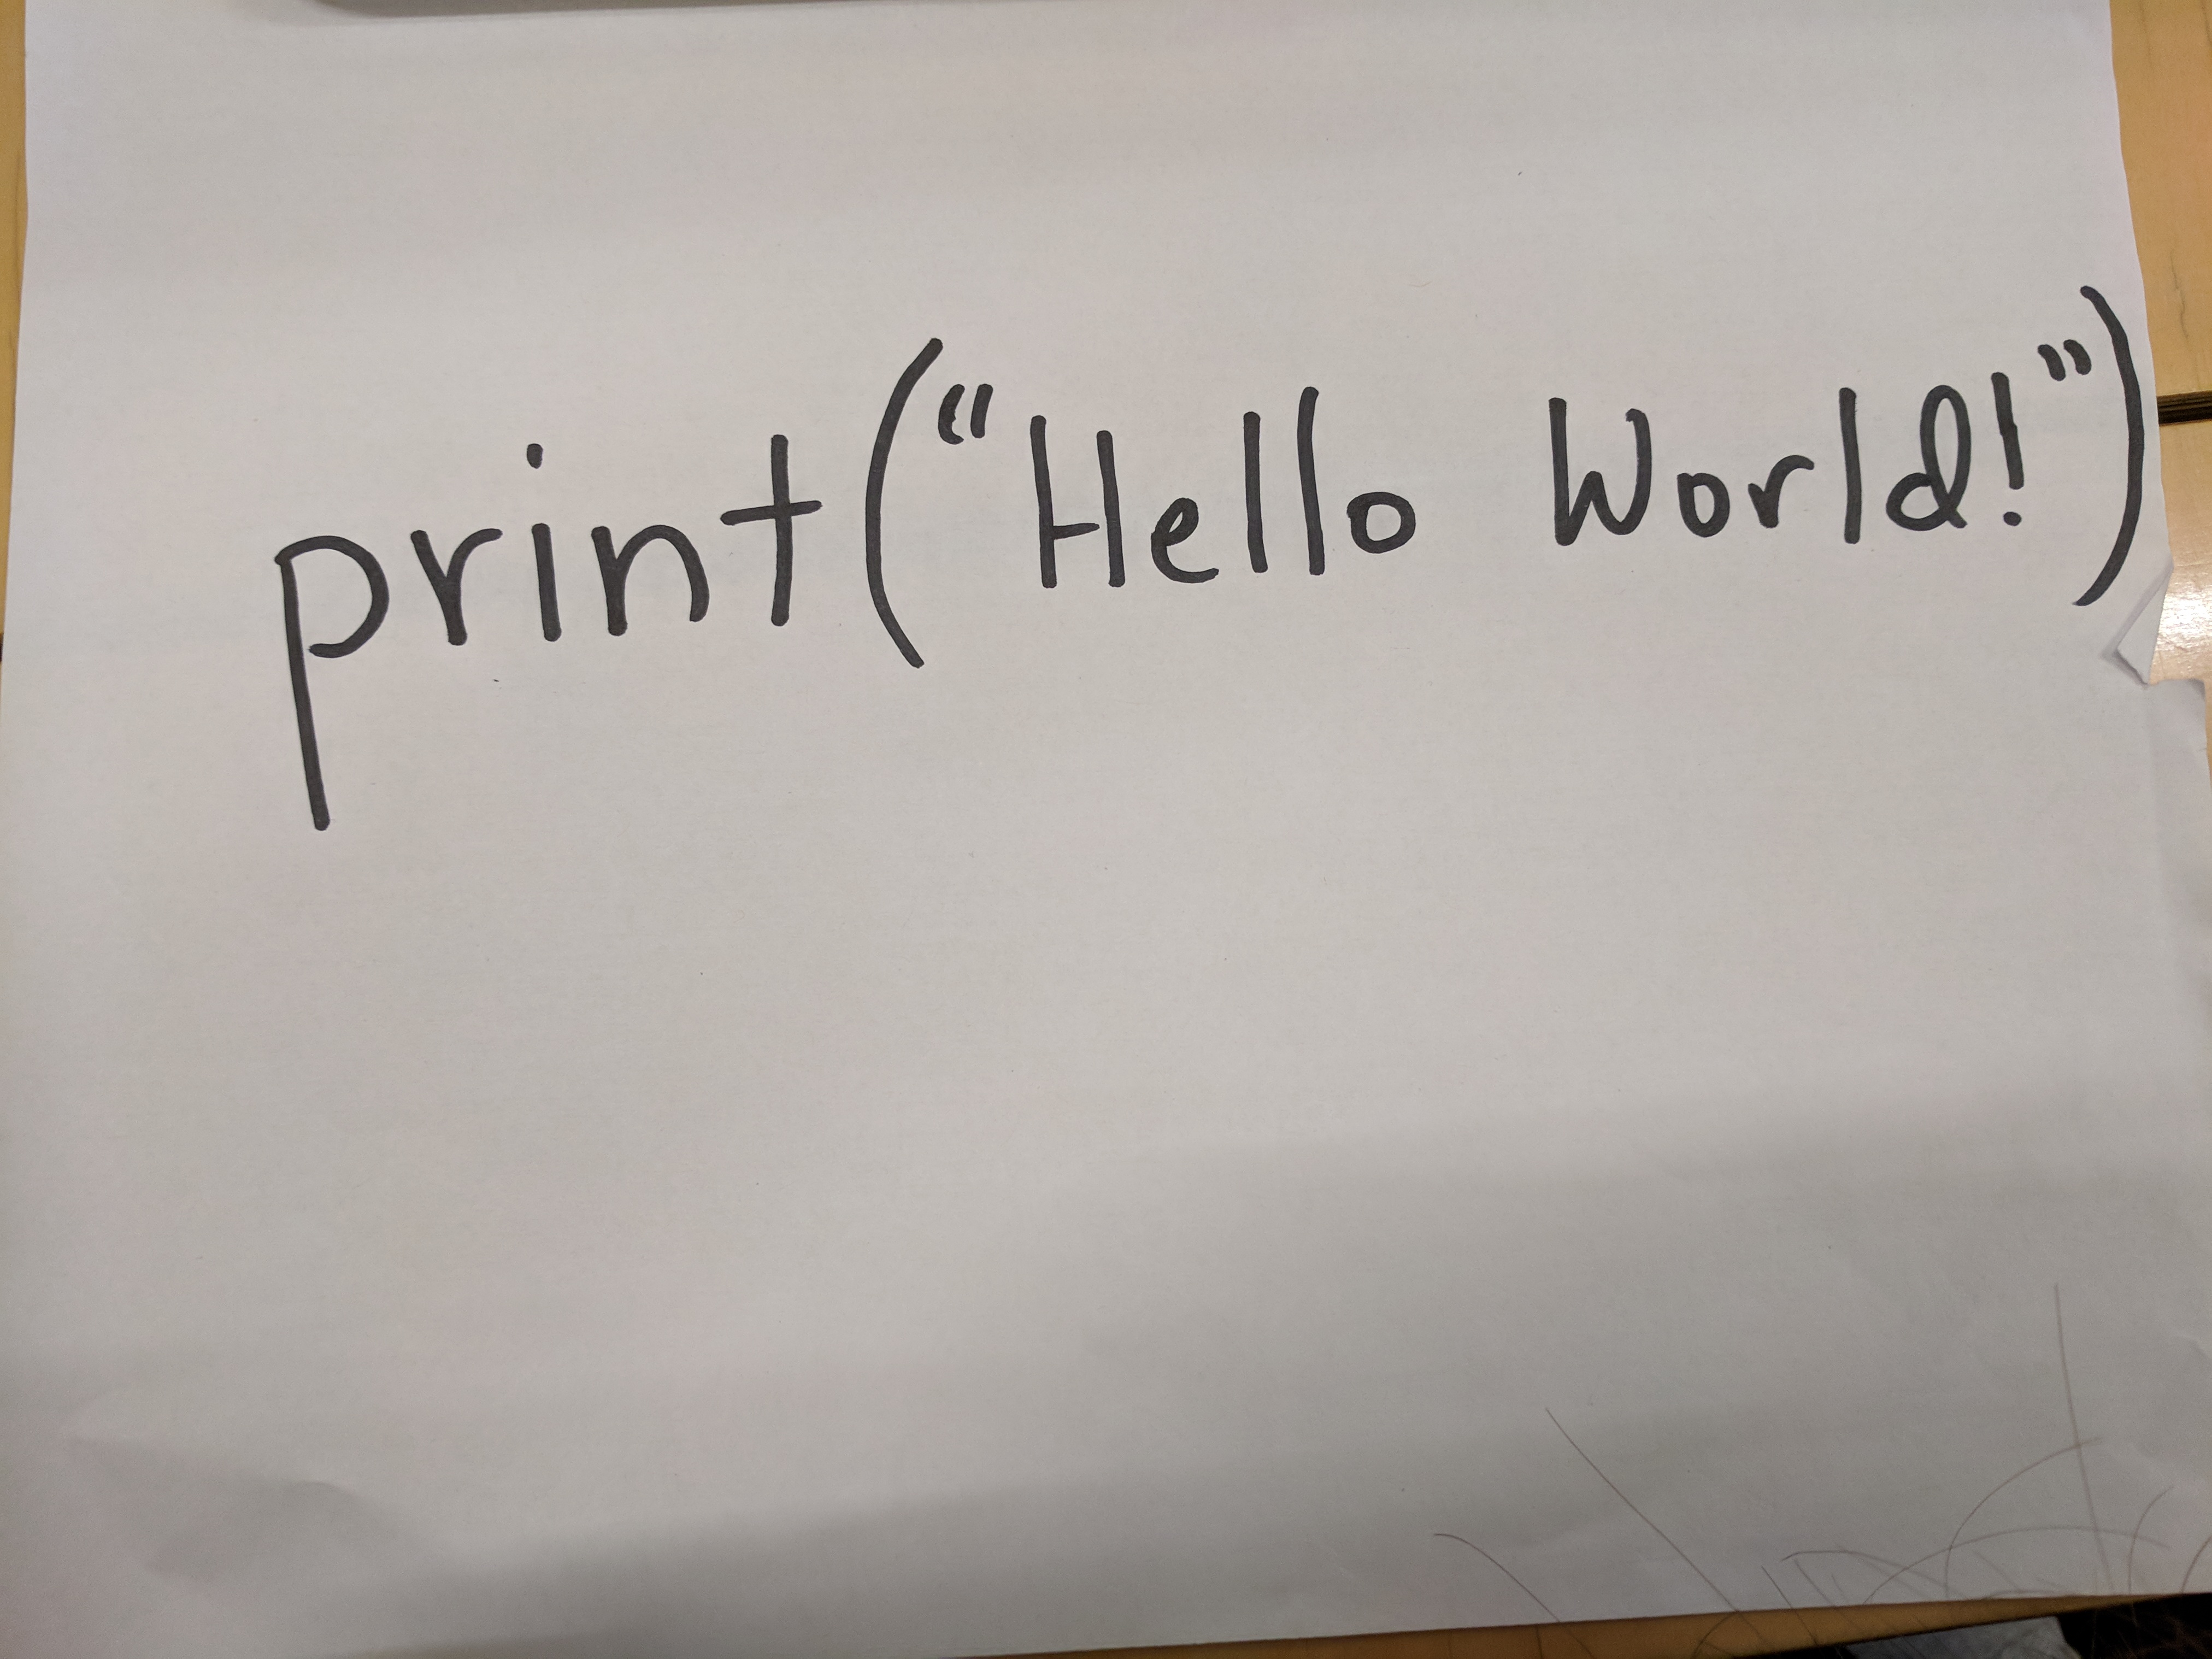 print(“Hello World!”)